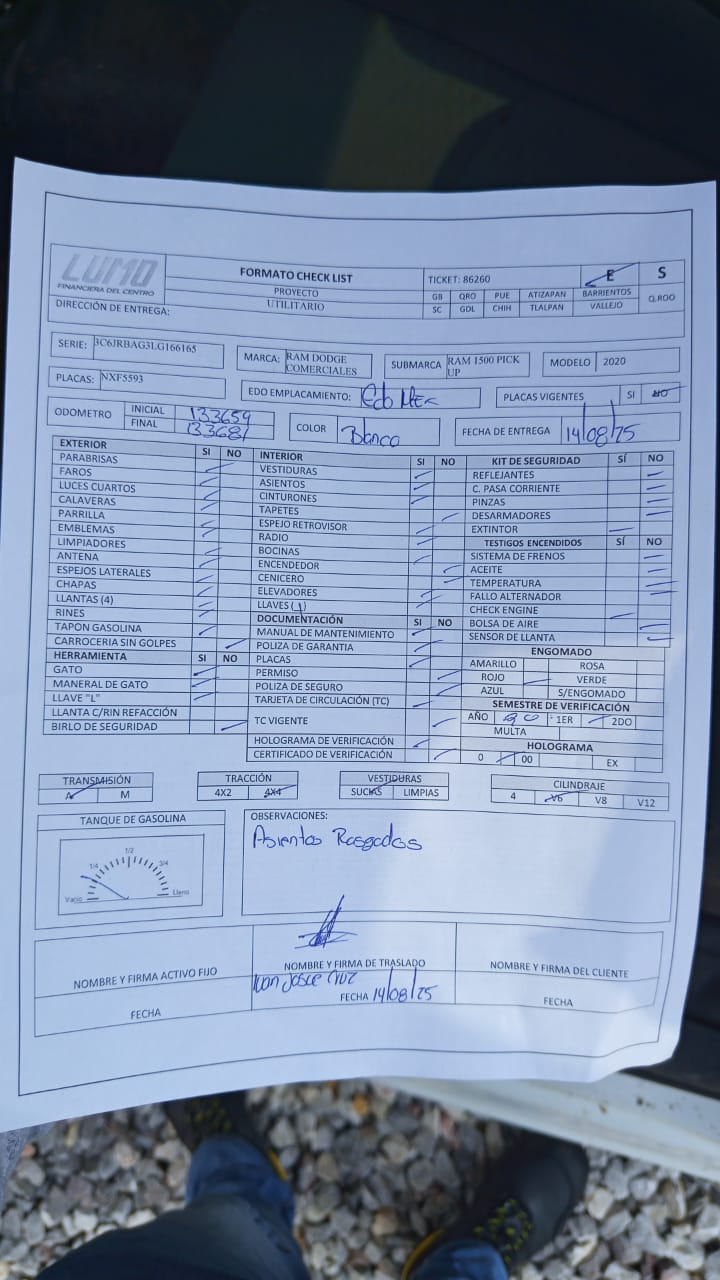 LUMO
FINANCIERA DEL CENTRO
FORMATO CHECK LIST
PROYECTO
UTILITARIO
TICKET: 86260
E
S
GB QRO PUE ATIZAPAN BARRIENTOS
SC GDL CHIH TLALPAN VALLEJO
Q.ROO
DIRECCIÓN DE ENTREGA:
SERIE: 3C6JRBAG3LG166165
MARCA: RAM DODGE COMERCIALES
SUBMARCA RAM 1500 PICK UP
MODELO 2020
PLACAS: NXF5593
EDO EMPLACAMIENTO: Edo Mex
PLACAS VIGENTES SI NO
ODOMETRO INICIAL 133659
FINAL 133681
COLOR Blanco
FECHA DE ENTREGA 14/08/25
EXTERIOR SI NO
PARABRISAS
FAROS
LUCES CUARTOS
CALAVERAS
PARRILLA
EMBLEMAS
LIMPIADORES
ANTENA
ESPEJOS LATERALES
CHAPAS
LLANTAS (4)
RINES
TAPON GASOLINA
CARROCERIA SIN GOLPES
HERRAMIENTA SI NO
GATO
MANERAL DE GATO
LLAVE "L"
LLANTA C/RIN REFACCIÓN
BIRLO DE SEGURIDAD
INTERIOR SI NO
VESTIDURAS
ASIENTOS
CINTURONES
TAPETES
ESPEJO RETROVISOR
RADIO
BOCINAS
ENCENDEDOR
CENICERO
ELEVADORES
LLAVES (1)
DOCUMENTACIÓN SI NO
MANUAL DE MANTENIMIENTO
POLIZA DE GARANTIA
PLACAS
PERMISO
POLIZA DE SEGURO
TARJETA DE CIRCULACIÓN (TC)
TC VIGENTE
HOLOGRAMA DE VERIFICACIÓN
CERTIFICADO DE VERIFICACIÓN
KIT DE SEGURIDAD SÍ NO
REFLEJANTES
C. PASA CORRIENTE
PINZAS
DESARMADORES
EXTINTOR
TESTIGOS ENCENDIDOS SÍ NO
SISTEMA DE FRENOS
ACEITE
TEMPERATURA
FALLO ALTERNADOR
CHECK ENGINE
BOLSA DE AIRE
SENSOR DE LLANTA
ENGOMADO
AMARILLO ROSA
ROJO VERDE
AZUL S/ENGOMADO
SEMESTRE DE VERIFICACIÓN
AÑO 1ER 2DO
MULTA
HOLOGRAMA
0 00 EX
TRANSMISIÓN
A M
TRACCIÓN
4X2 4X4
VESTIDURAS
SUCIAS LIMPIAS
CILINDRAJE
4 V6 V8 V12
TANQUE DE GASOLINA
Vacio 1/4 1/2 3/4 Lleno
OBSERVACIONES:
Asientos Rasgados
NOMBRE Y FIRMA ACTIVO FIJO
FECHA
NOMBRE Y FIRMA DE TRASLADO
Cruz
FECHA 14/08/25
NOMBRE Y FIRMA DEL CLIENTE
FECHA